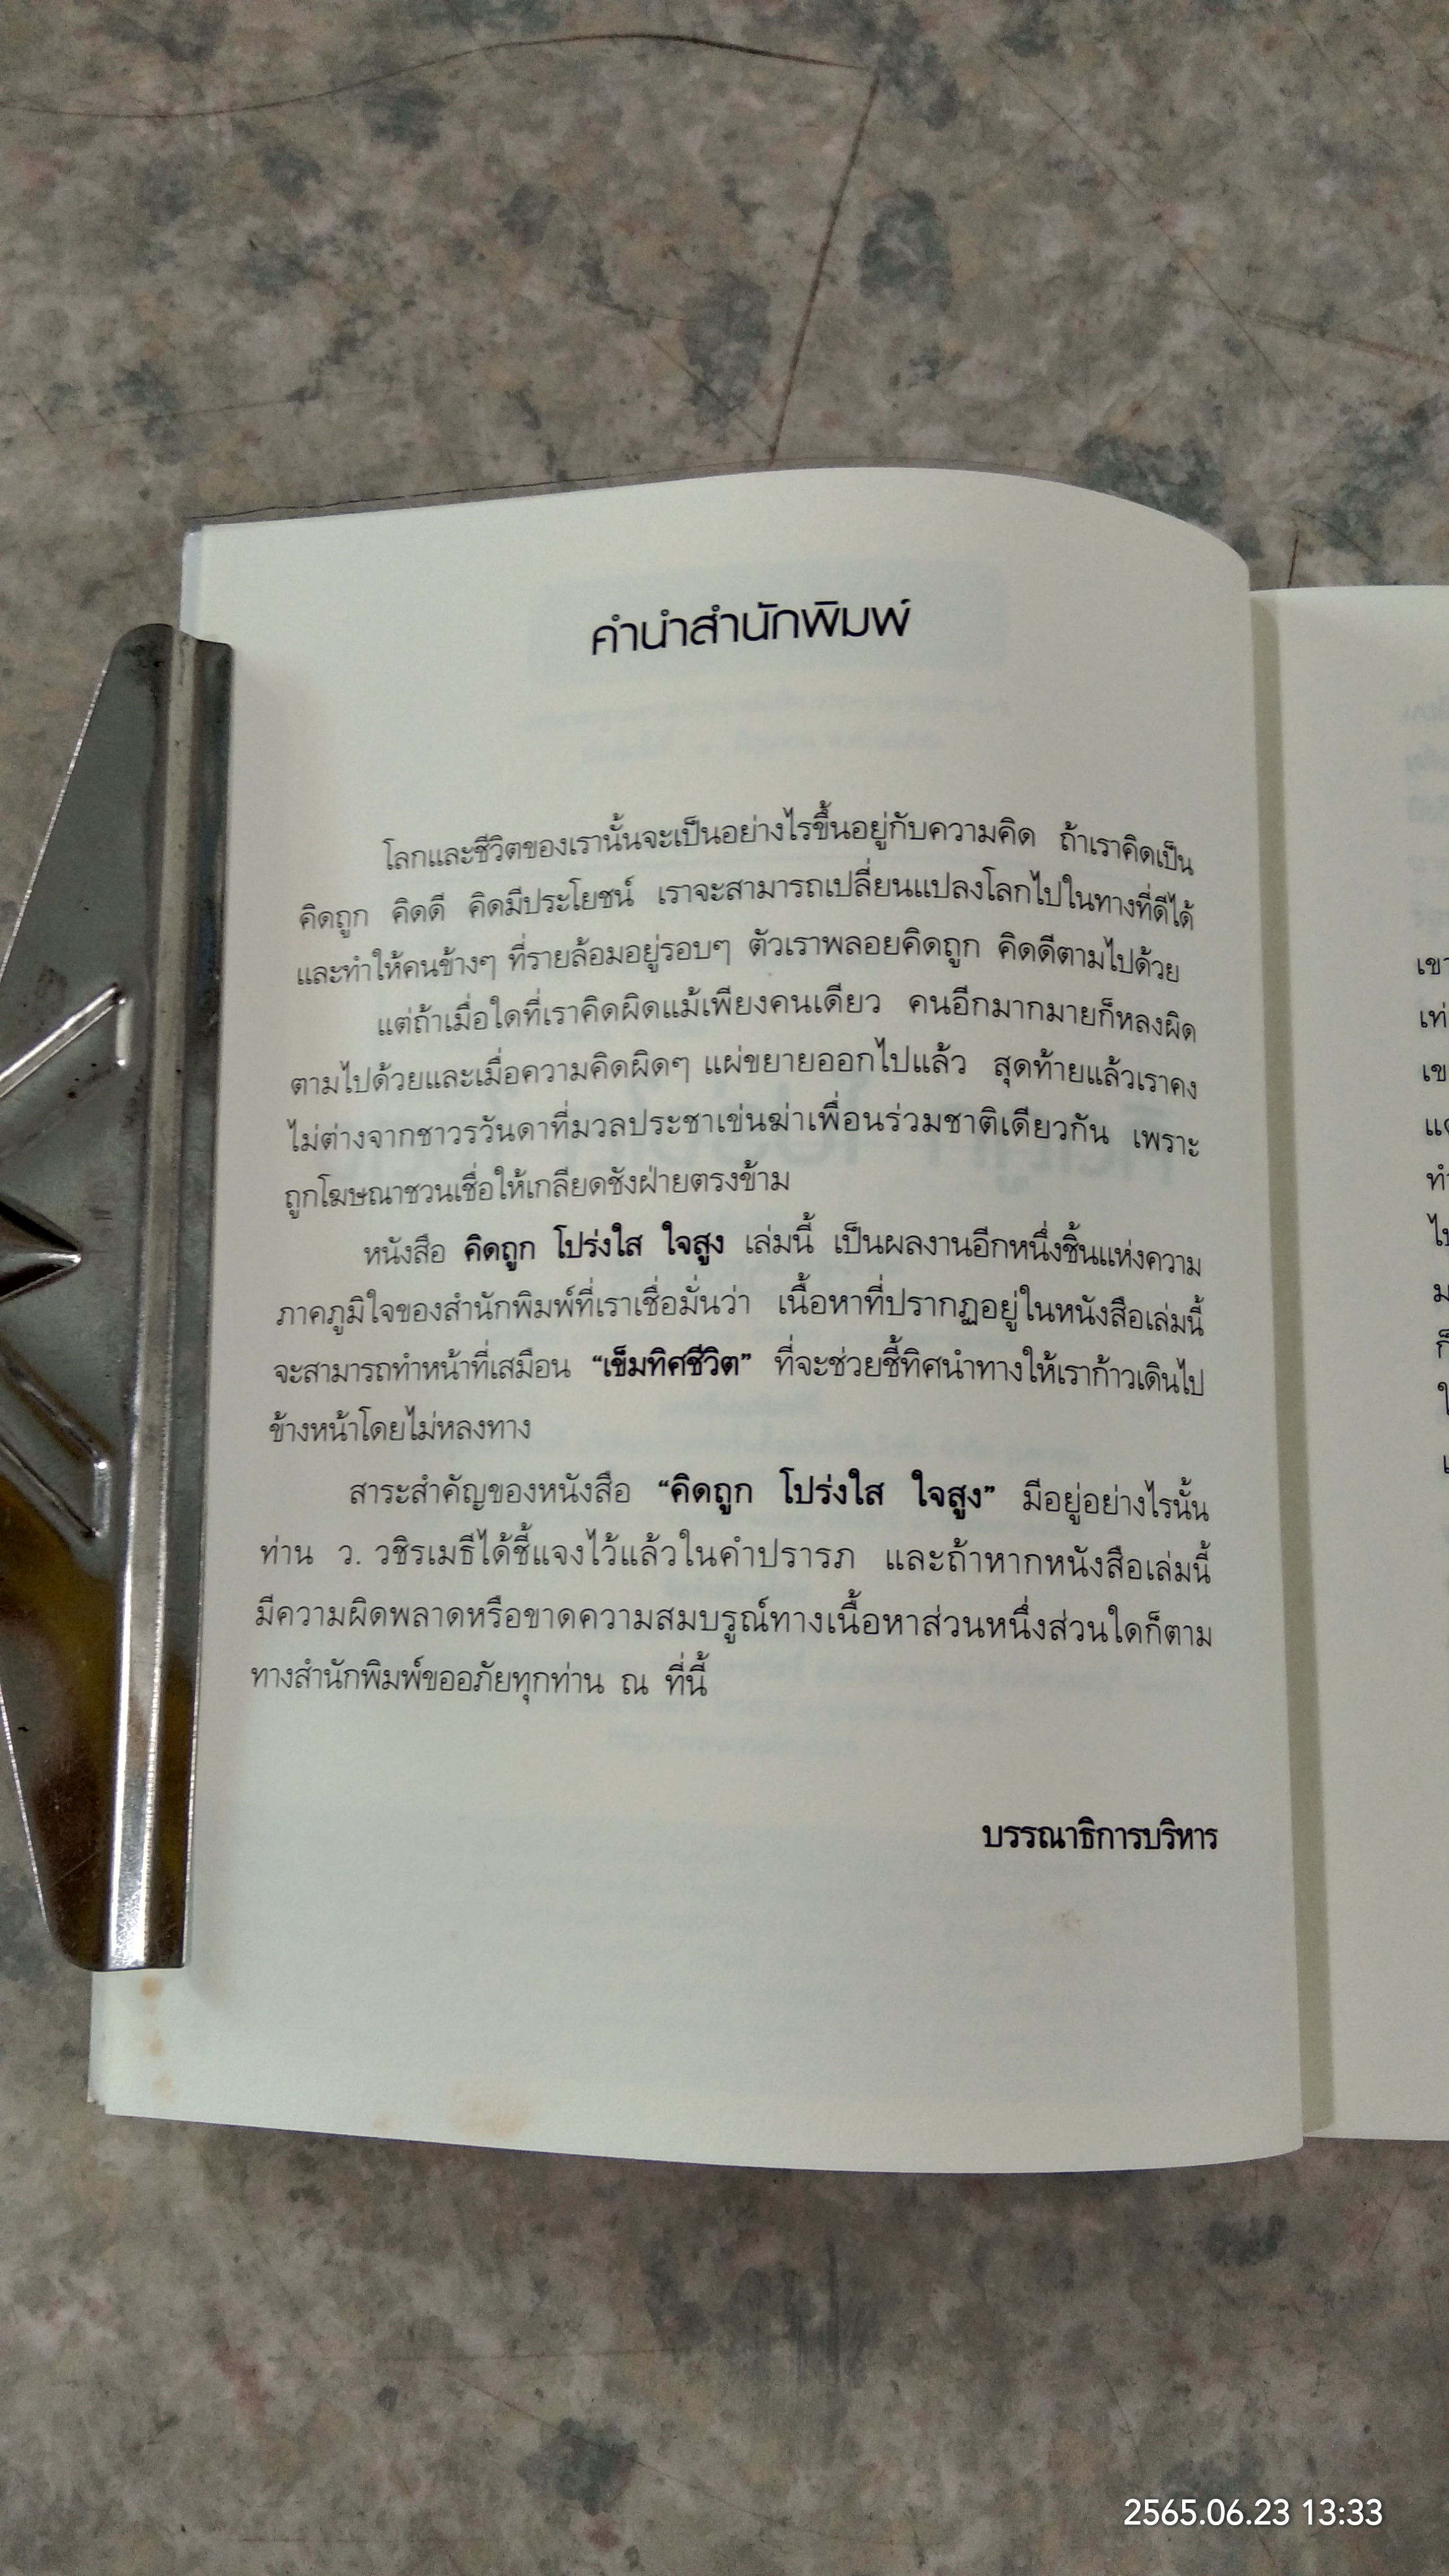 คำนำสำนักพิมพ์
โลกและชีวิตของเรานั้นจะเป็นอย่างไรขึ้นอยู่กับความคิด ถ้าเราคิดเป็น
คิดถูก คิดดี คิดมีประโยชน์ เราจะสามารถเปลี่ยนแปลงโลกไปในทางที่ดีได้
และทำให้คนข้างๆ ที่รายล้อมอยู่รอบๆ ตัวเราพลอยคิดถูก คิดดีตามไปด้วย
แต่ถ้าเมื่อใดที่เราคิดผิดแม้เพียงคนเดียว คนอีกมากมายก็หลงผิด
ตามไปด้วยและเมื่อความคิดผิดๆ แผ่ขยายออกไปแล้ว สุดท้ายแล้วเราคง
ไม่ต่างจากชาวรวันดาที่มวลประชาเข่นฆ่าเพื่อนร่วมชาติเดียวกัน เพราะ
ถูกโฆษณาชวนเชื่อให้เกลียดชังฝ่ายตรงข้าม
หนังสือ คิดถูก โปร่งใส ใจสูง เล่มนี้ เป็นผลงานอีกหนึ่งชิ้นแห่งความ
ภาคภูมิใจของสำนักพิมพ์ที่เราเชื่อมั่นว่า เนื้อหาที่ปรากฏอยู่ในหนังสือเล่มนี้
จะสามารถทำหน้าที่เสมือน “เข็มทิศชีวิต” ที่จะช่วยชี้ทิศนำทางให้เราก้าวเดินไป
ข้างหน้าโดยไม่หลงทาง
สาระสำคัญของหนังสือ “คิดถูก โปร่งใส ใจสูง” มีอยู่อย่างไรนั้น
ท่าน ว. วชิรเมธีได้ชี้แจงไว้แล้วในคำปรารภ และถ้าหากหนังสือเล่มนี้
มีความผิดพลาดหรือขาดความสมบรูณ์ทางเนื้อหาส่วนหนึ่งส่วนใดก็ตาม
ทางสำนักพิมพ์ขออภัยทุกท่าน ณ ที่นี้
บรรณาธิการบริหาร
2565.06.23 13:33